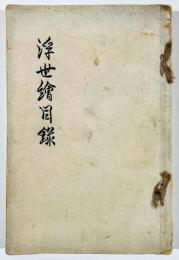 浮世繪目錄